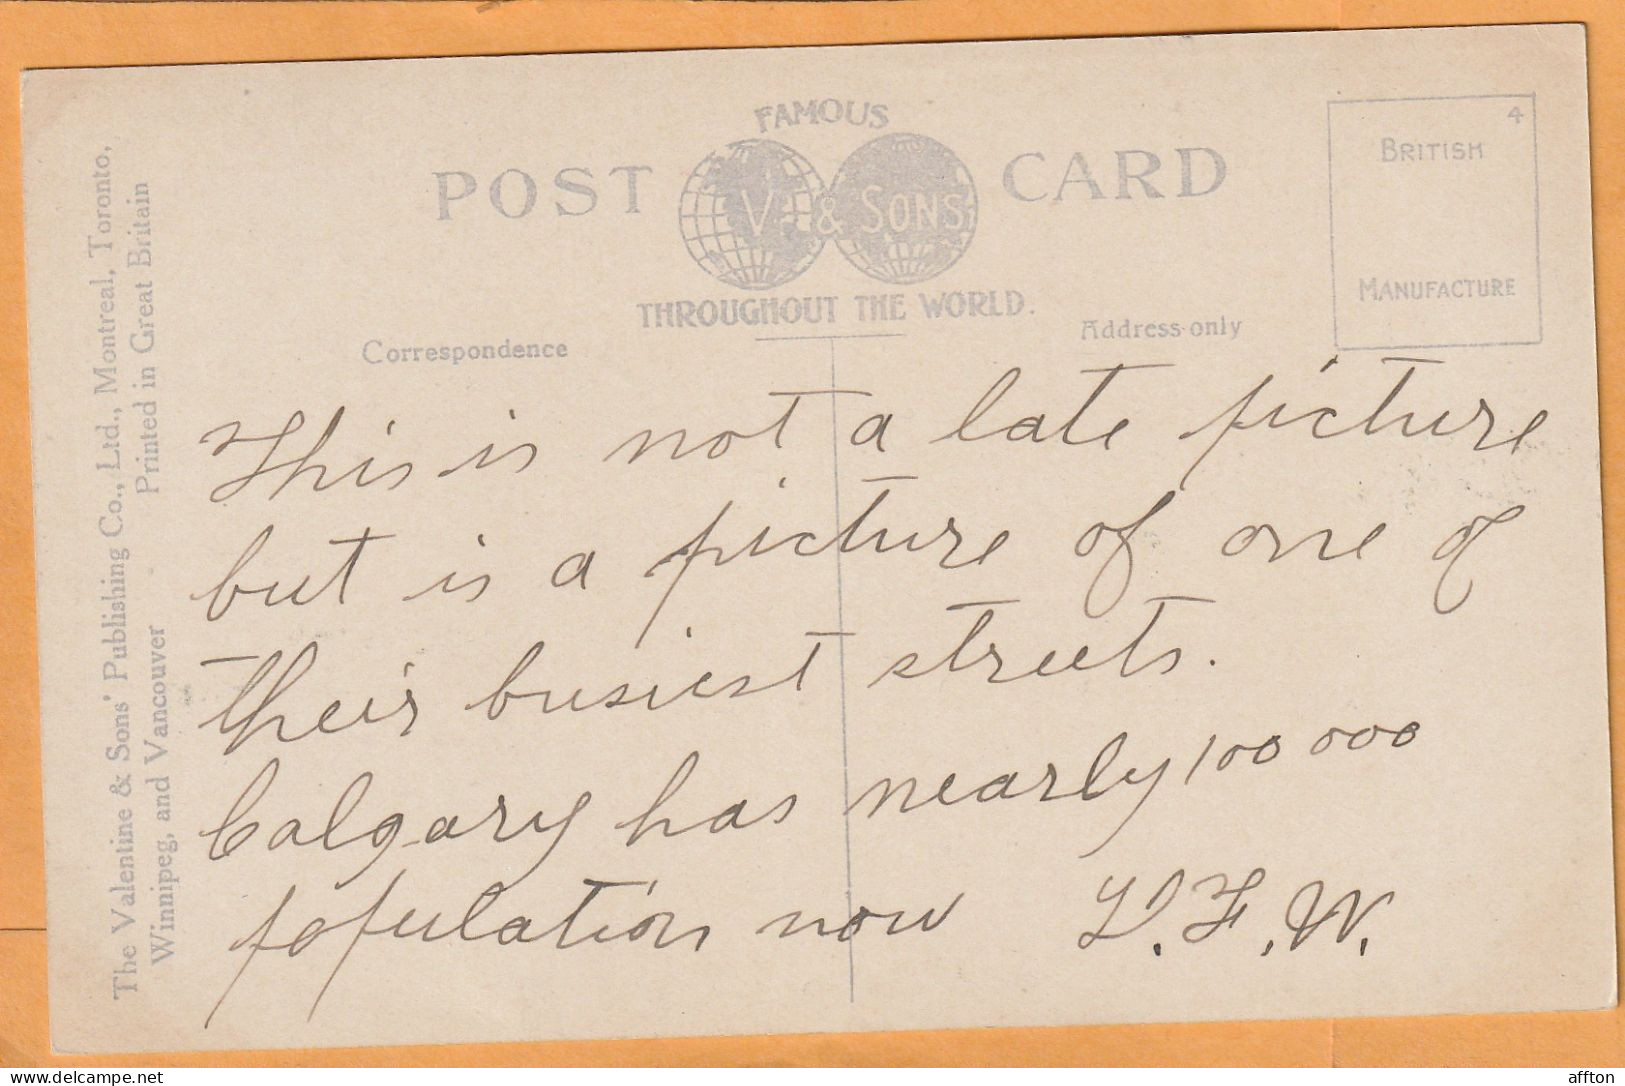 FAMOUS
POST CARD
V. & SONS
THROUGHOUT THE WORLD.
4
BRITISH
MANUFACTURE
Correspondence
Address only
The Valentine & Sons' Publishing Co., Ltd., Montreal, Toronto,
Winnipeg, and Vancouver Printed in Great Britain
This is not a late picture
but is a picture of one of
their busiest streets.
Calgary has nearly 100 000
population now
F. W.
delcampe.net
affton